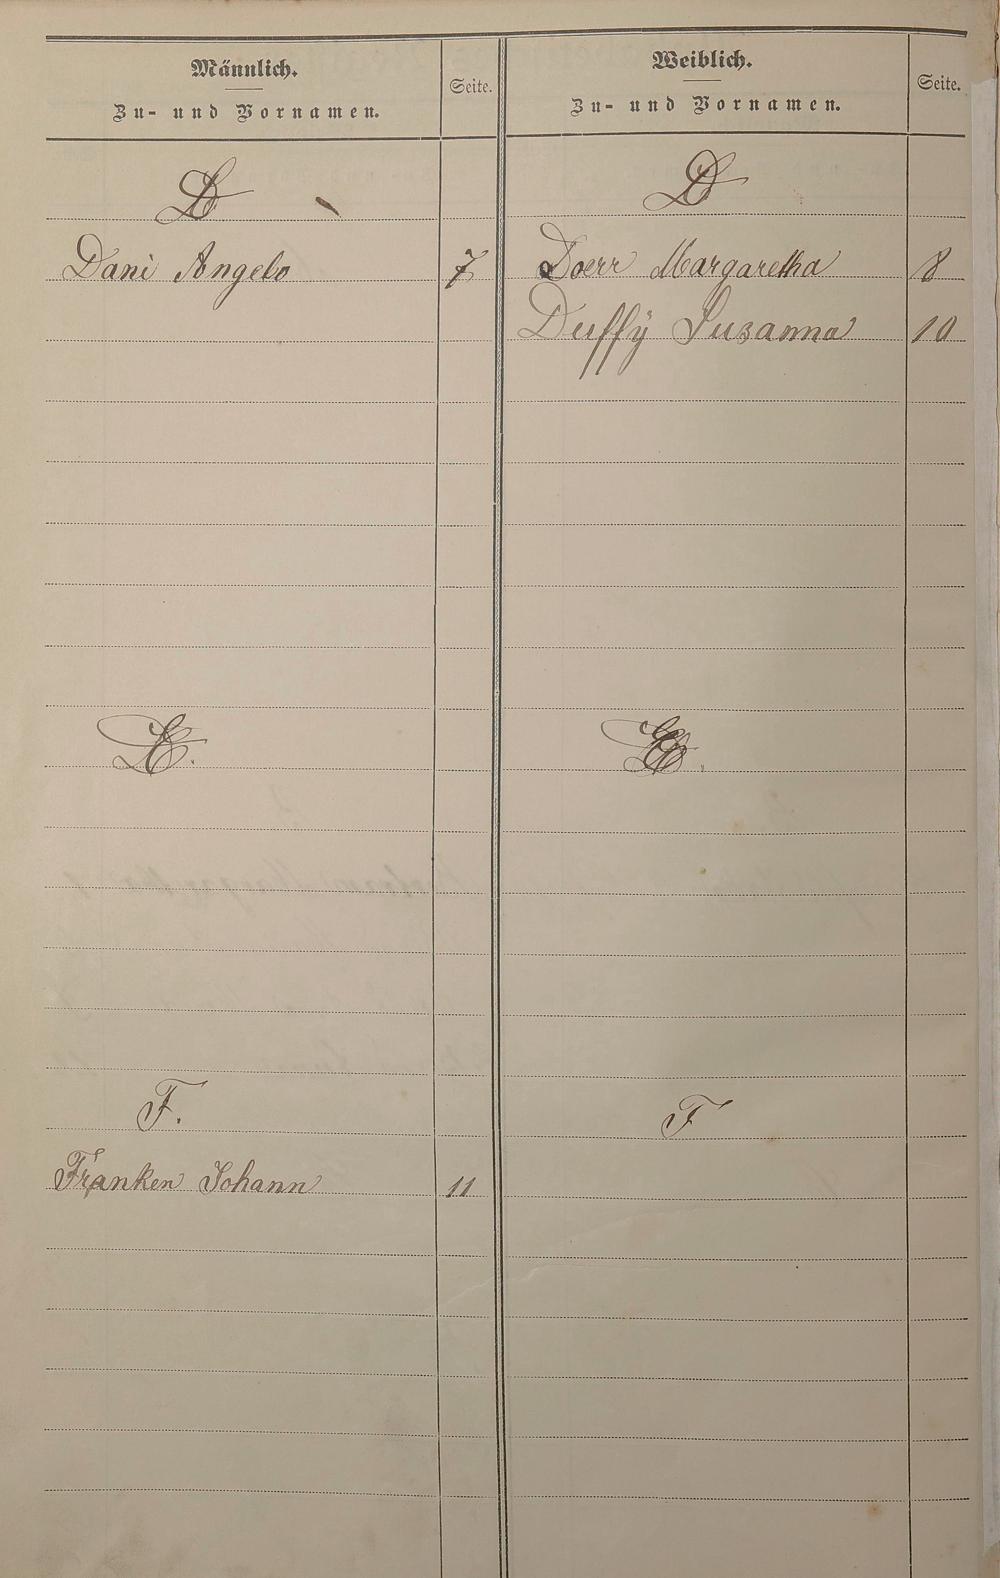 Männlich.
Zu- und Vornamen.
Seite.
Weiblich.
Zu- und Vornamen.
Seite.
D
D
Dani Angelo 7
Doerr Margaretha 8
Duffÿ Susanna 10
E.
E.
F.
F
Franken Johann 11